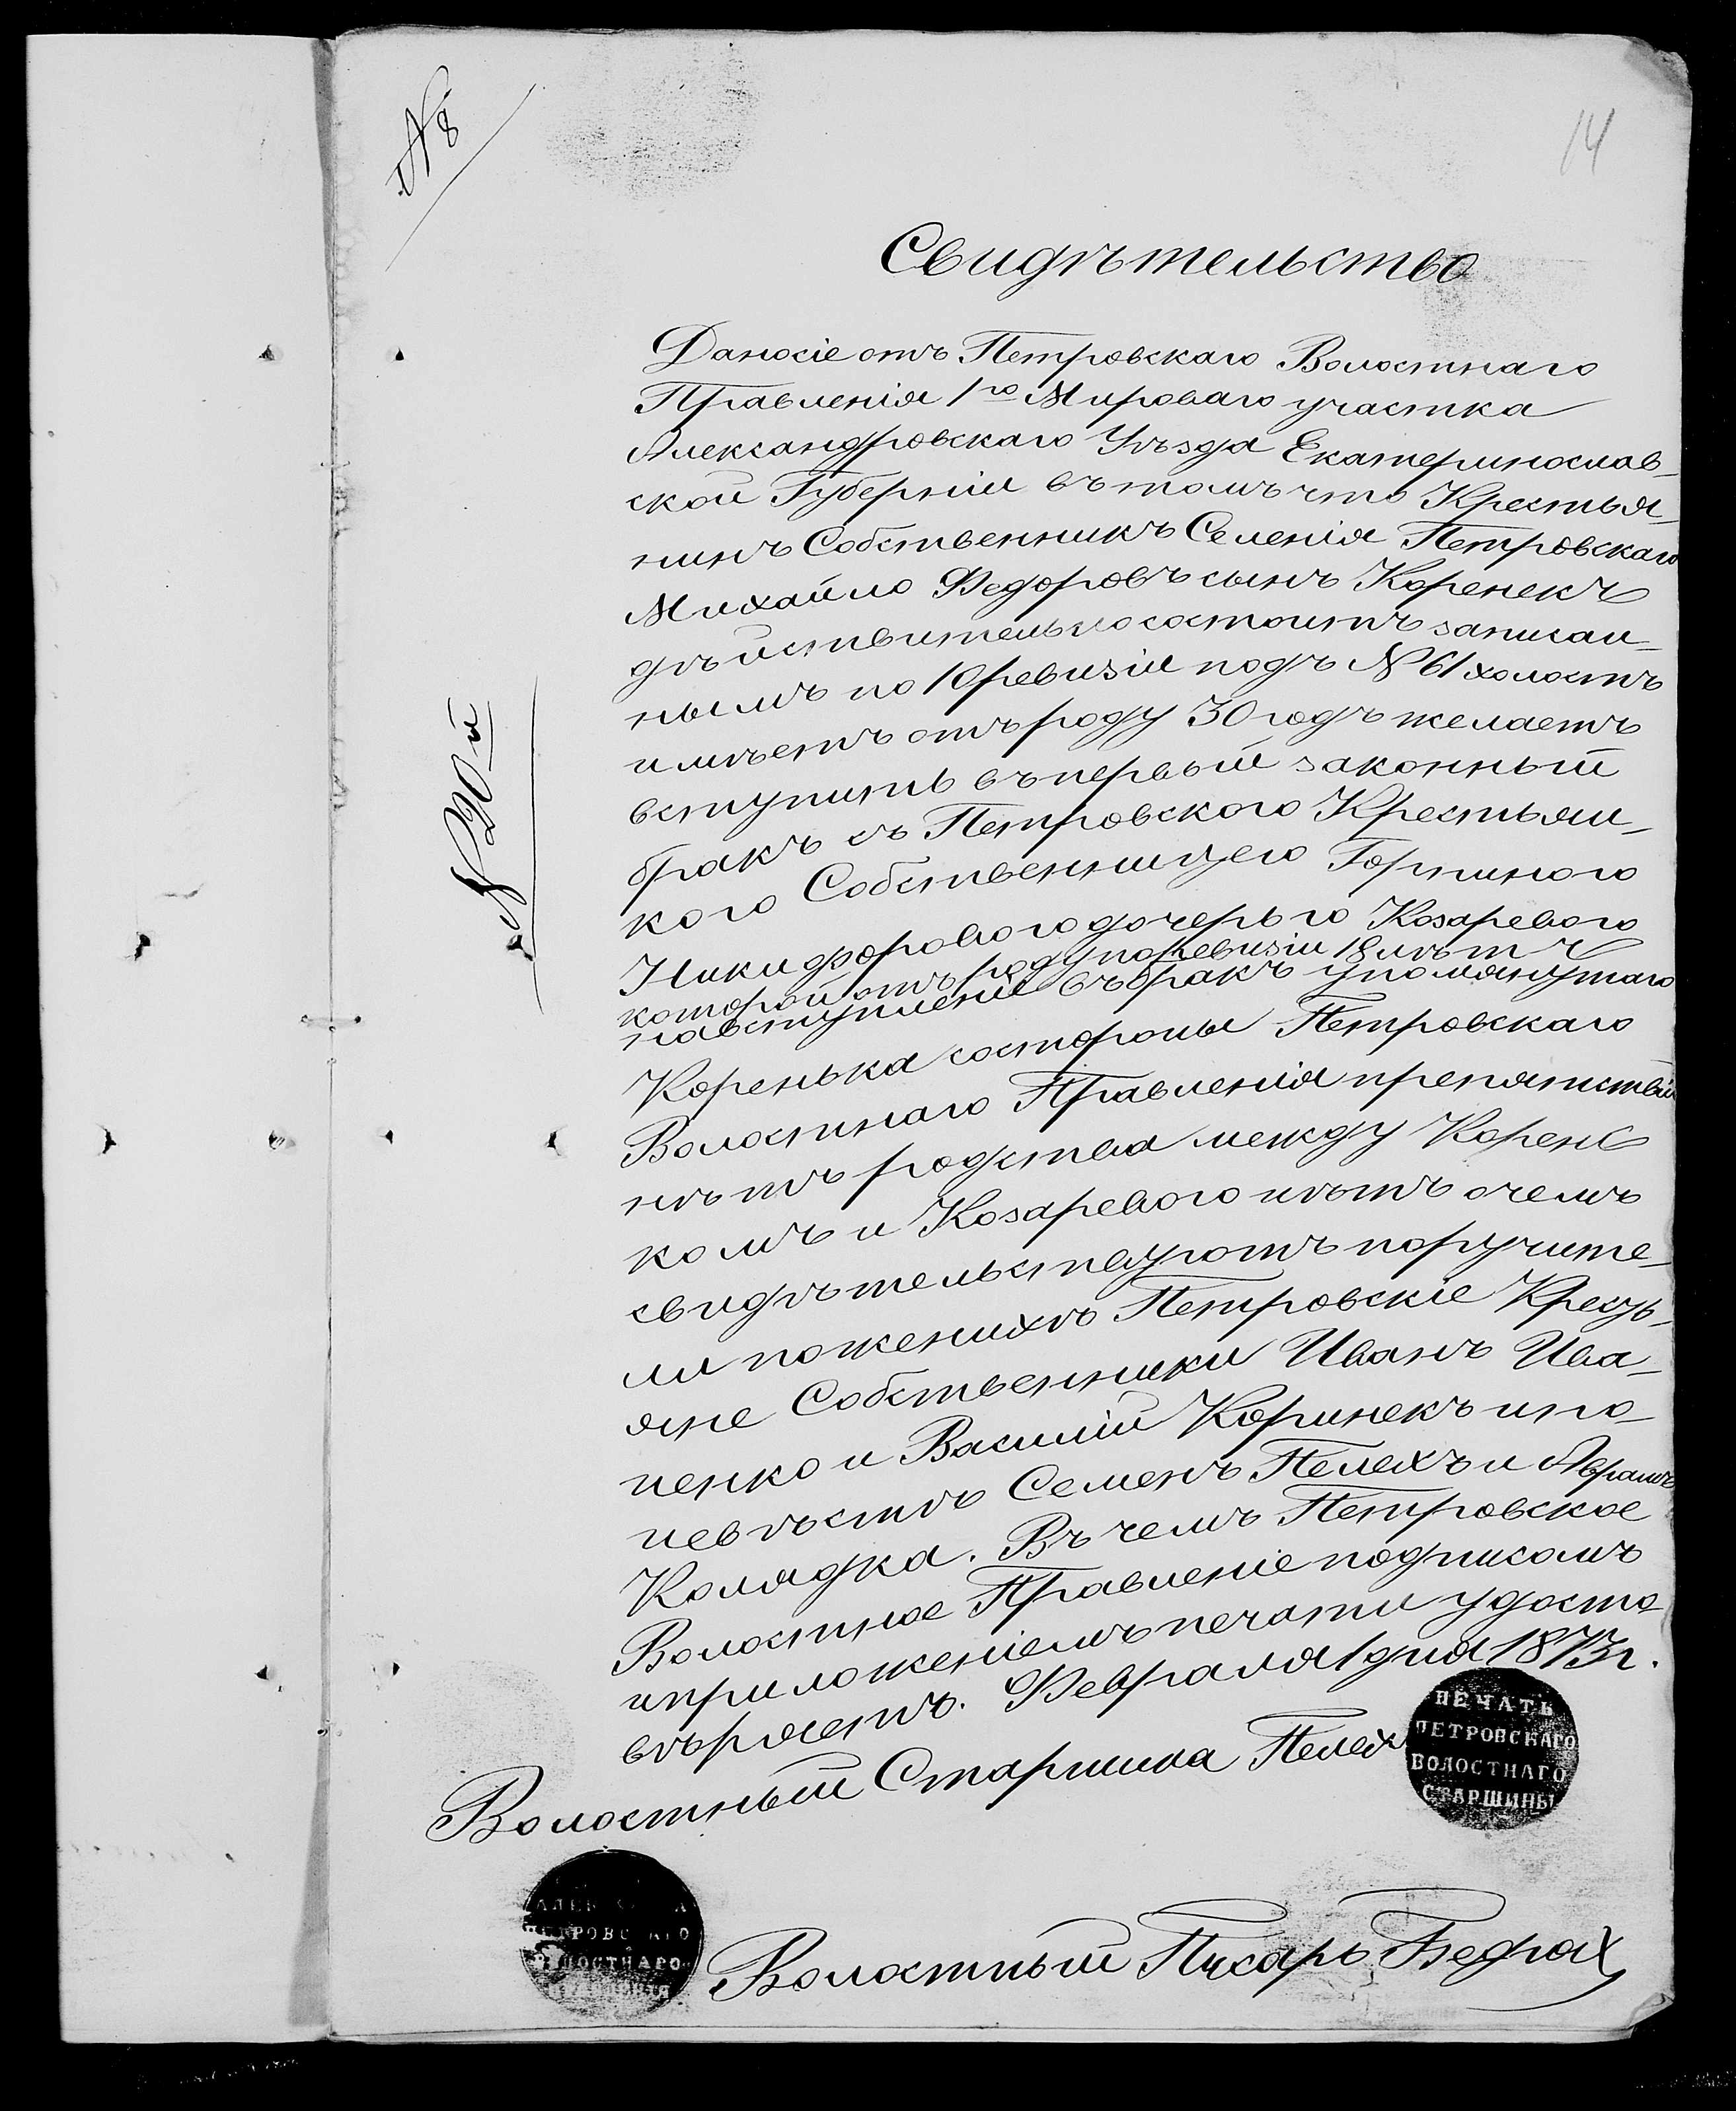 № 8
14
Свидѣтельство
Даносіе отъ Петровскаго Волостнаго
Правленія 1го Мироваго участка
Александровскаго Уѣзда Екатеринослав-
ской Губерніи въ томъ что Крестья-
нинъ Собственникъ Селенія Петровскаго
Михайло Федоровъ сынъ Коренекъ
дѣйствительно состоитъ записан-
нымъ по 10 ревизіи подъ № 61 холостъ
имѣетъ отъ роду 30 годъ желаетъ
вступить въ первый законный
бракъ съ Петровского Крестьян-
кого Собственницего Горпиного
Никифоровогодочерьго Козаревого
которой отъ роду по ревизіи 18 лѣтъ
навступленіе въ бракъ упомянутаго
Коренька состороны Петровскаго
Волостнаго Правленія препятствій
нѣтъ родства между Корень
комъ и Козаревого нѣтъ очемъ
свидѣтельствуютъ поручите-
ли поженихѣ Петровскіе Кресть-
яне Собственники Иванъ Ива-
ненко и Василій Коринекъ ипо-
невѣстѣ Семенъ Пелехъ и Аврамъ
Колядка. Въ чемъ Петровское
Волостное Правленіе подписомъ
иприложеніемъ печати удосто-
вѣряетъ. Февраля 1 дня 1873 г.
Волостный Старшина Пелехъ
ПЕЧАТЬ
ПЕТРОВСКАГО
ВОЛОСТНАГО
СТАРШИНЫ
Волостный Писарь Бедрах
№ 20й